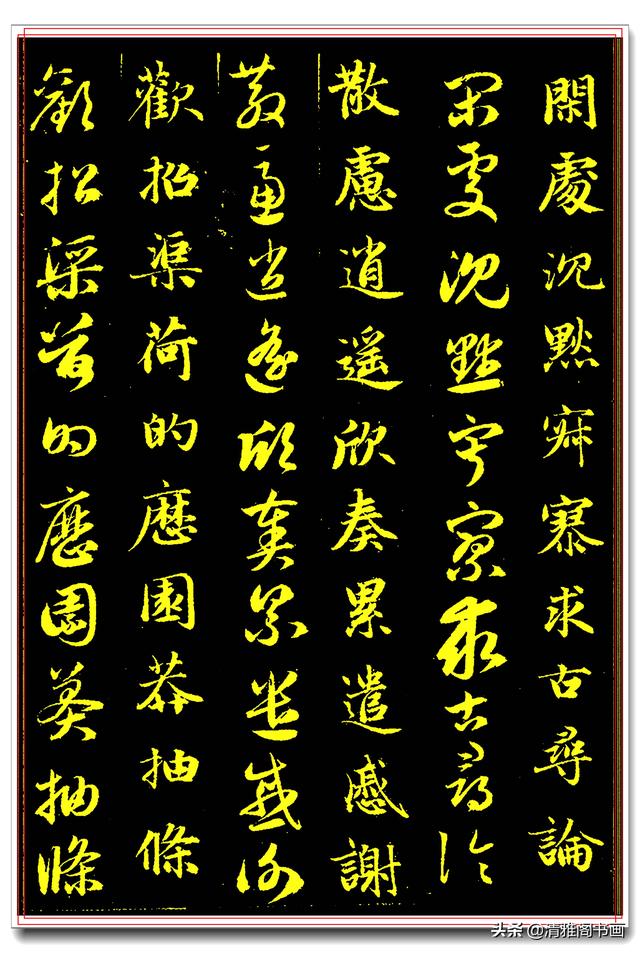 閑處沉默寂寥求古尋論
閑處沉默寂寥求古尋論
散慮逍遙欣奏累遣慼謝
散慮逍遙欣奏累遣慼謝
歡招渠荷的歷園莽抽條
歡招渠荷的歷園莽抽條
头条 @清雅阁书画